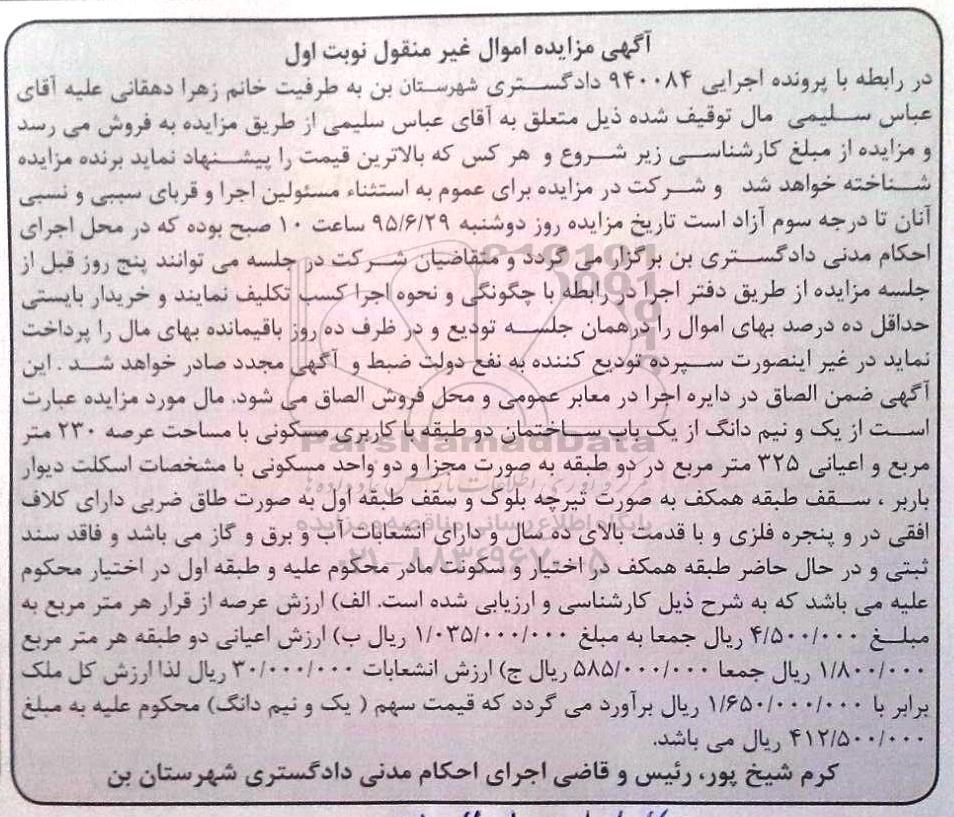 آگهی مزایده اموال غیر منقول نوبت اول
در رابطه با پرونده اجرایی ۹۴۰۰۸۴ دادگستری شهرستان بن به طرفیت خانم زهرا دهقانی علیه آقای
عباس سلیمی مال توقیف شده ذیل متعلق به آقای عباس سلیمی از طریق مزایده به فروش می رسد
و مزایده از مبلغ کارشناسی زیر شروع و هر کس که بالاترین قیمت را پیشنهاد نماید برنده مزایده
شناخته خواهد شد و شرکت در مزایده برای عموم به استثناء مسئولین اجرا و قربای سببی و نسبی
آنان تا درجه سوم آزاد است تاریخ مزایده روز دوشنبه ۹۵/۶/۲۹ ساعت ۱۰ صبح بوده که در محل اجرای
احکام مدنی دادگستری بن برگزار می گردد و متقاضیان شرکت در جلسه می توانند پنج روز قبل از
جلسه مزایده از طریق دفتر اجرا در رابطه با چگونگی و نحوه اجرا کسب تکلیف نمایند و خریدار بایستی
حداقل ده درصد بهای اموال را درهمان جلسه تودیع و در ظرف ده روز باقیمانده بهای مال را پرداخت
نماید در غیر اینصورت سپرده تودیع کننده به نفع دولت ضبط و آگهی مجدد صادر خواهد شد . این
آگهی ضمن الصاق در دایره اجرا در معابر عمومی و محل فروش الصاق می شود. مال مورد مزایده عبارت
است از یک و نیم دانگ از یک باب ساختمان دو طبقه با کاربری مسکونی با مساحت عرصه ۲۳۰ متر
مربع و اعیانی ۳۲۵ متر مربع در دو طبقه به صورت مجزا و دو واحد مسکونی با مشخصات اسکلت دیوار
باربر ، سقف طبقه همکف به صورت تیرچه بلوک و سقف طبقه اول به صورت طاق ضربی دارای کلاف
افقی در و پنجره فلزی و با قدمت بالای ده سال و دارای انشعابات آب و برق و گاز می باشد و فاقد سند
ثبتی و در حال حاضر طبقه همکف در اختیار و سکونت مادر محکوم علیه و طبقه اول در اختیار محکوم
علیه می باشد که به شرح ذیل کارشناسی و ارزیابی شده است. الف) ارزش عرصه از قرار هر متر مربع به
مبلغ ۴/۵۰۰/۰۰۰ ریال جمعا به مبلغ ۱/۰۳۵/۰۰۰/۰۰۰ ریال ب) ارزش اعیانی دو طبقه هر متر مربع
۱/۸۰۰/۰۰۰ ریال جمعا ۵۸۵/۰۰۰/۰۰۰ ریال ج) ارزش انشعابات ۳۰/۰۰۰/۰۰۰ ریال لذا ارزش کل ملک
برابر با ۱/۶۵۰/۰۰۰/۰۰۰ ریال برآورد می گردد که قیمت سهم ( یک و نیم دانگ) محکوم علیه به مبلغ
۴۱۲/۵۰۰/۰۰۰ ریال می باشد.
کرم شیخ پور، رئیس و قاضی اجرای احکام مدنی دادگستری شهرستان بن
ParsNamadData
پایگاه اطلاع رسانی مناقصه و مزایده